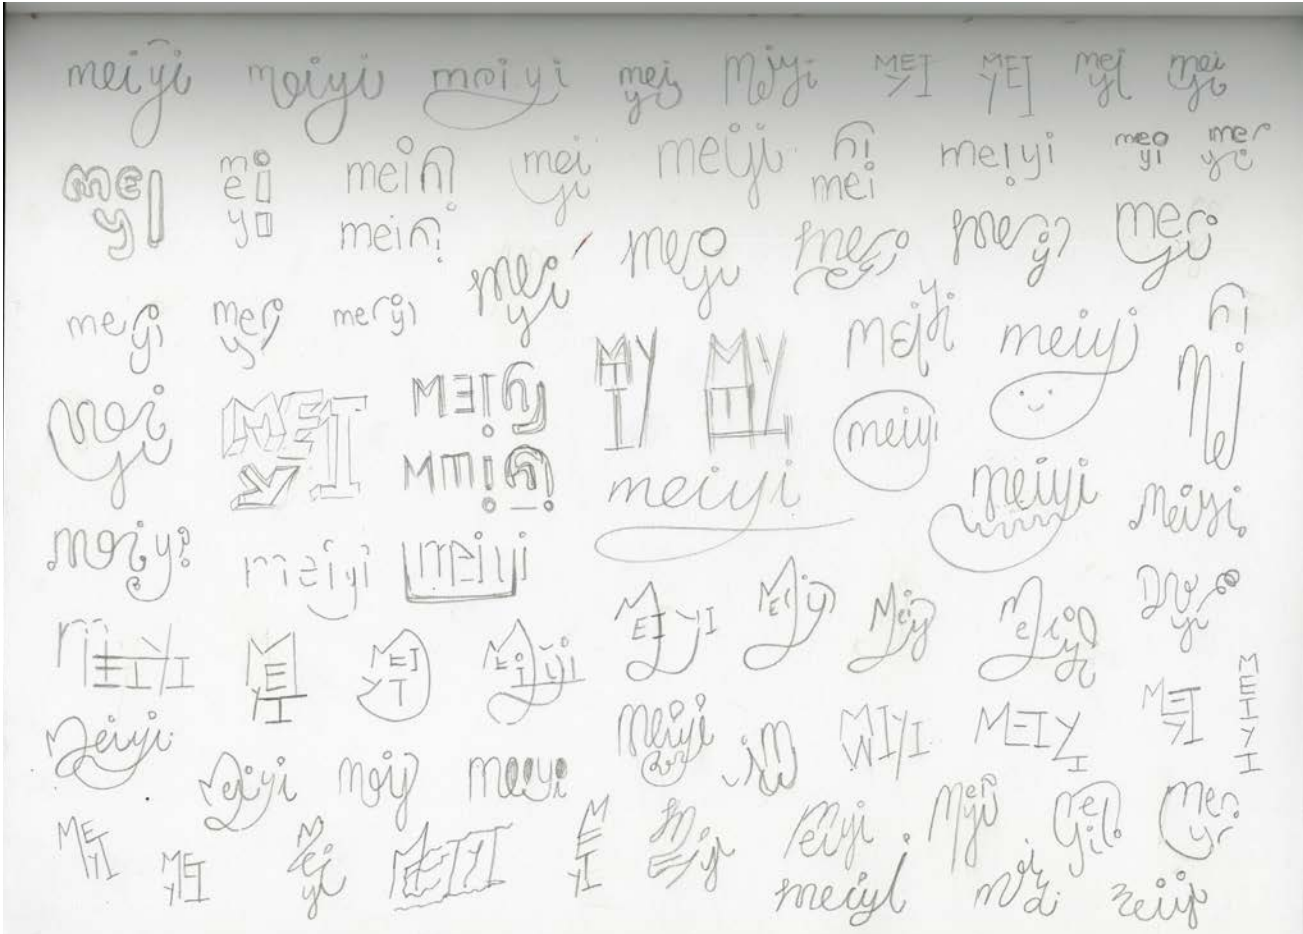 meiyi meiyi meiyi mei yi meiyi MEI YI MEI YI mei yi mei yi
MEI YI mei yi meiyi mei yi meiyi yi mei meiyi mei yi mei yi
meiyi
mei yi mei yi mei yi mei yi mei yi
mei yi mei yi meiyi meiyi meiyi yi mei
mei yi MEI YI MEIYI MEIYI MEIYI meiyi
MEIYI meiyi meiyi meiyi
meiyi meiyi meiyi
MEIYI meiyi meiyi meiyi mei yi
MEIYI MEI YI MEI YI meiyi MEI YI MEIYI
meiyi meiyi meiyi meiyi meiyi MEIYI
meiyi mei yi mei yi mei yi
MEI YI MEI YI mei yi MEIYI MEI YI mei yi meiyi meiyi meiyi